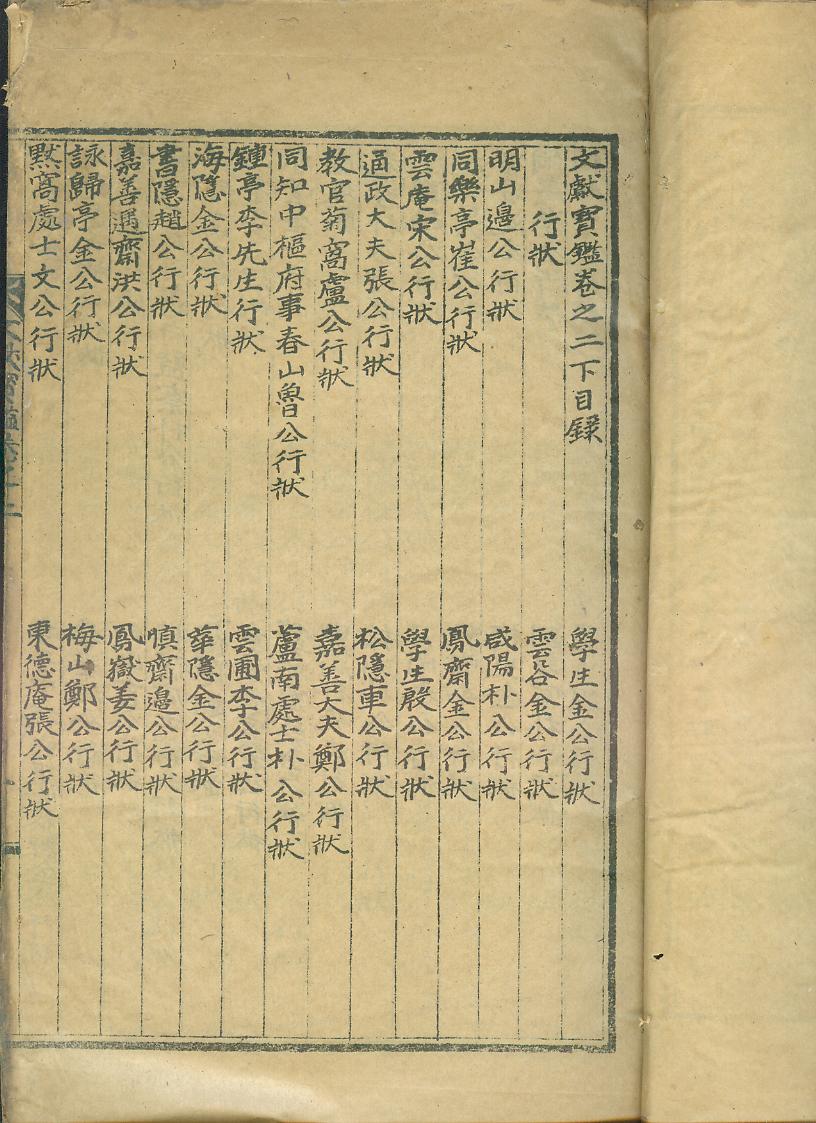 文獻寶鑑卷之二下目錄
行狀
明山邊公行狀
同樂亭崔公行狀
雲庵宋公行狀
通政大夫張公行狀
教官菊窩盧公行狀
同知中樞府事春山魯公行狀
鍾亭李先生行狀
海隱金公行狀
書隱趙公行狀
嘉善遇齋洪公行狀
詠歸亭金公行狀
默窩處士文公行狀
學生金公行狀
雲谷金公行狀
咸陽朴公行狀
鳳齋金公行狀
學生殷公行狀
松隱車公行狀
嘉善大夫鄭公行狀
蘆南處士朴公行狀
雲圃李公行狀
華隱金公行狀
愼齋邊公行狀
鳳嶽姜公行狀
梅山鄭公行狀
東德庵張公行狀